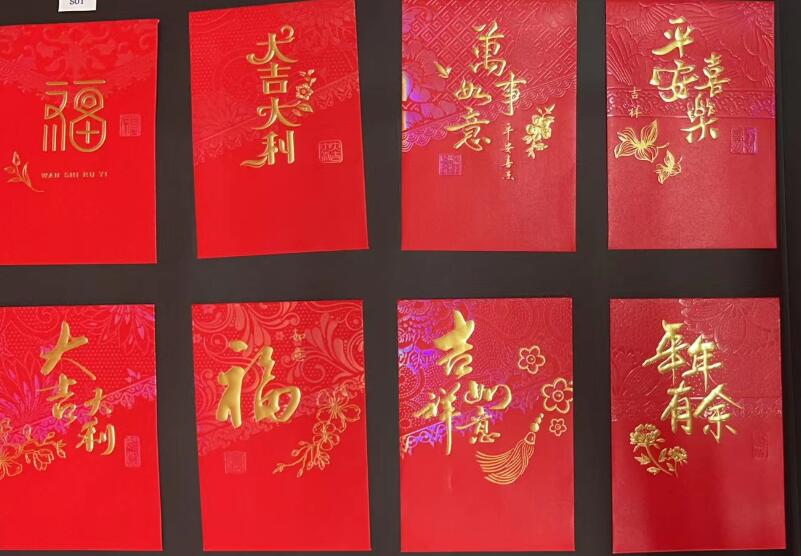 S01
福
WAN SHI RU YI
大吉大利
萬事如意
平安喜乐
平安
喜樂
吉祥
大吉
大利
如意
福
吉祥
如意
年年
有余